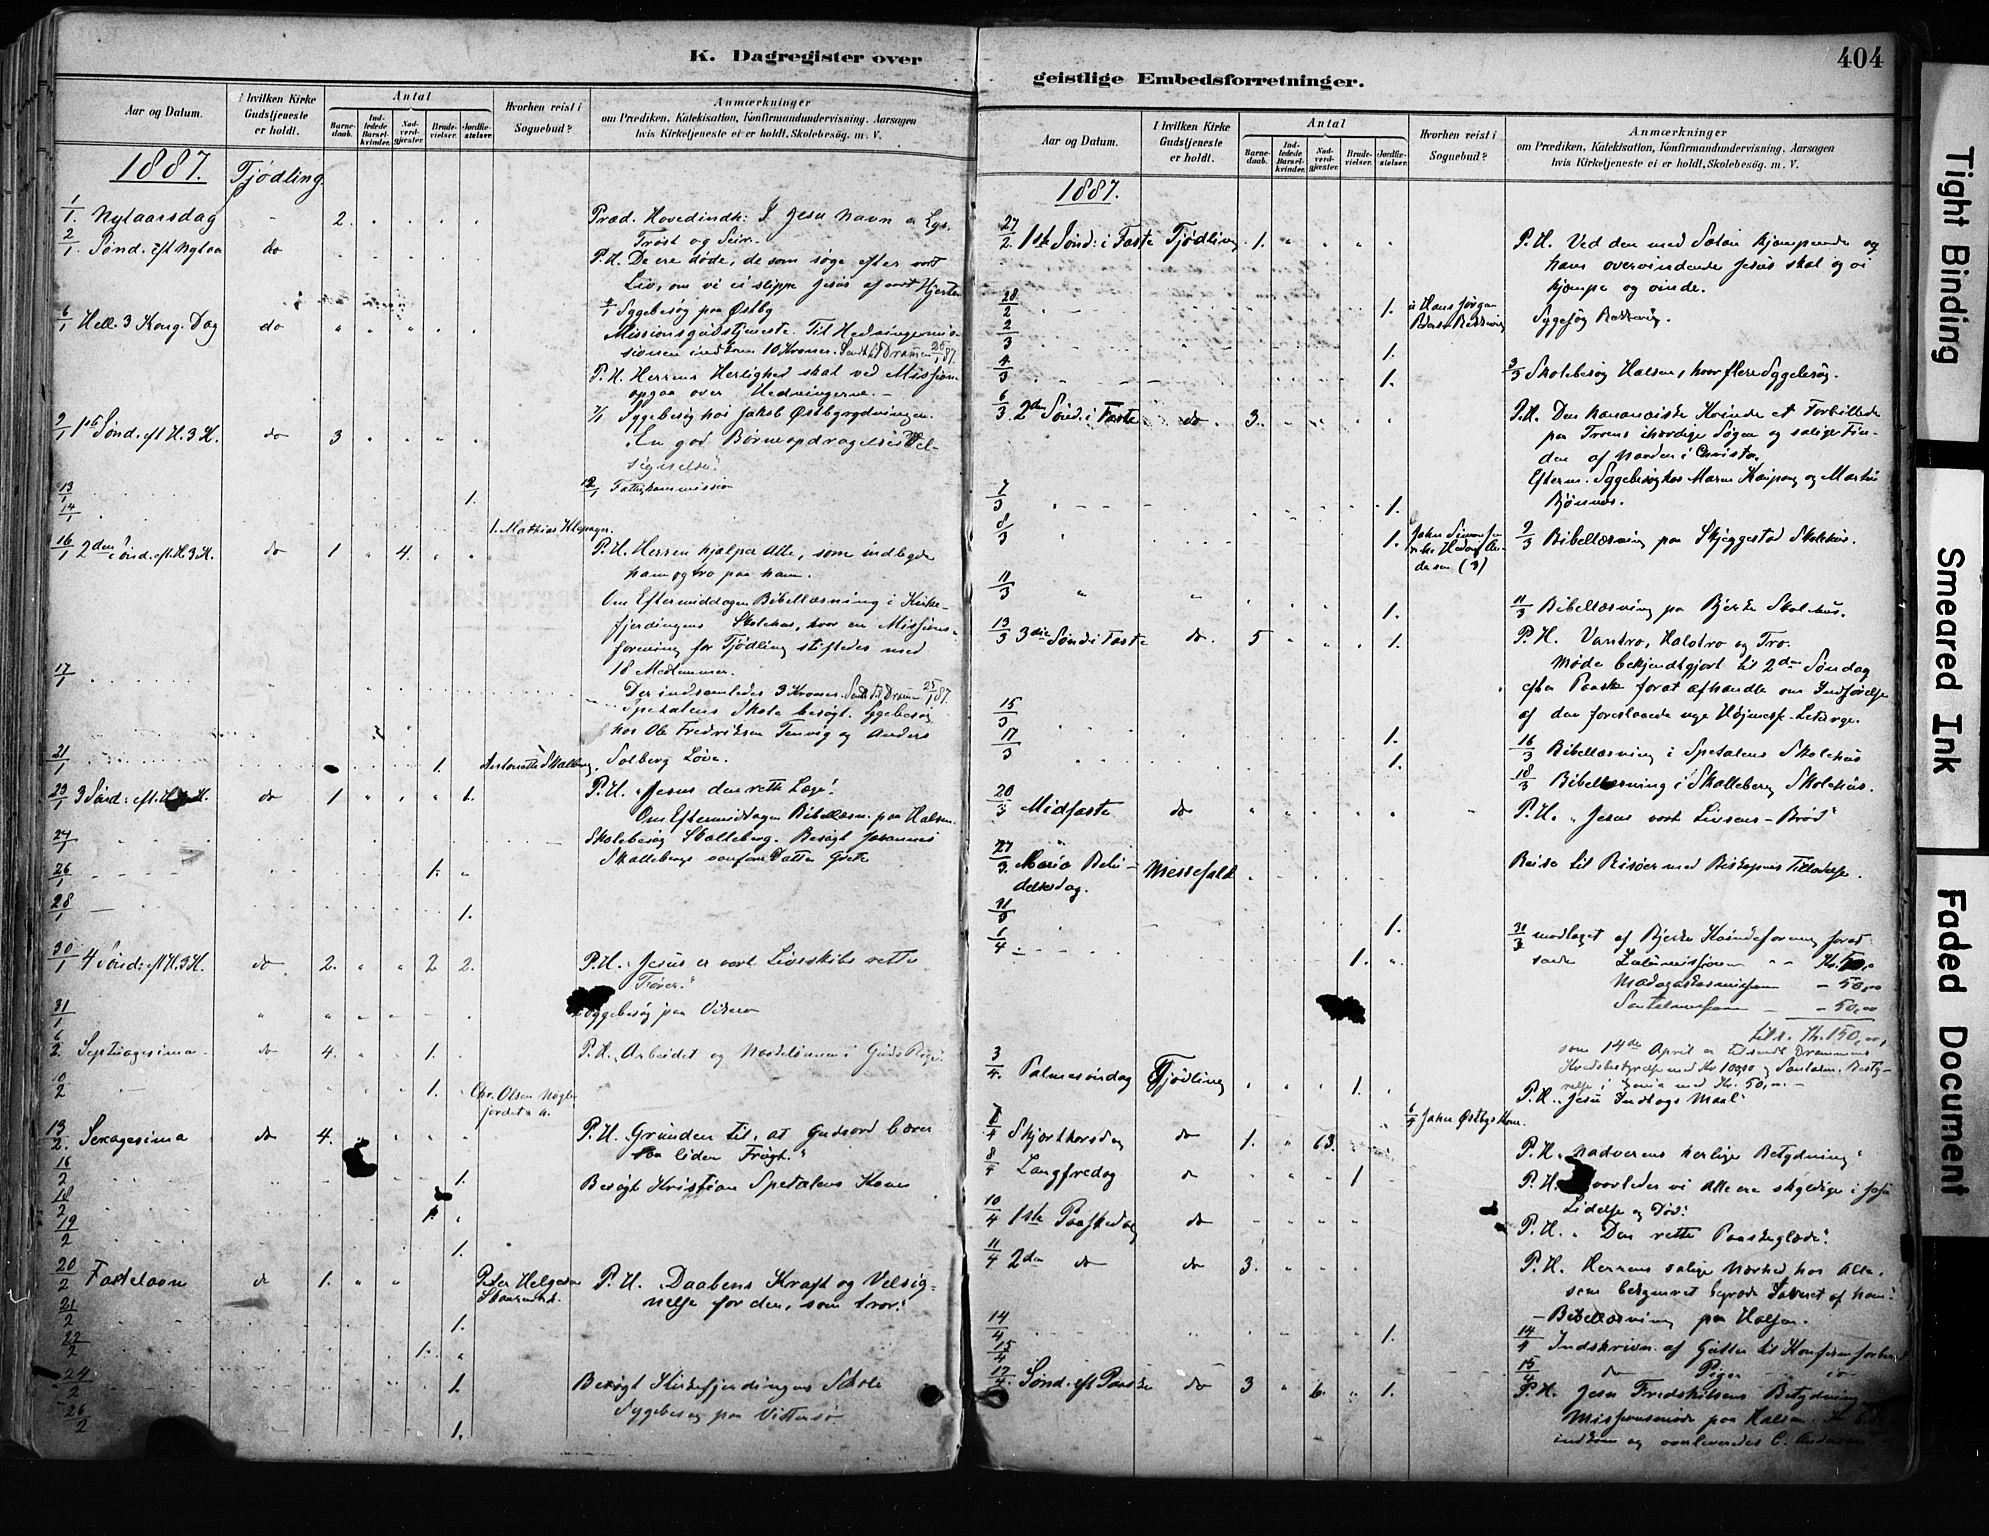 K. Dagregister over
Aar og Datum.
I hvilken Kirke Gudstjeneste er holdt.
Antal
Barnedaab.
Indledede Barselkvinder.
Nadverdgjester.
Brudevielser.
Jordfæstelser.
Hvorhen reist i Sognebud?
Anmærkninger
om Prædiken, Katekisation, Konfirmandundervisning, Aarsagen
hvis Kirketjeneste ei er holdt, Skolebesøg. m. V.
1887. Tjødling.
1/1. Nytaarsdag 2. Præd. Hovedindh: I Jesu Navn er Lys,
Trøst og Seir.
2/1 Sønd. eft Nytaar do P.H. De ere døde, de som søge efter vort
Liv, om vi ei slippe Jesus af vort Hjerte
Sygebesøg paa Østby
6/1 Hell. 3 Kong. Dag do Missionsgudstjeneste. Til Hedningemis-
sionen indkom 10 Kroner. Sendt til Drammen 25/1 87.
P.H. Herrens Herlighed skal ved Missionen
opgaa over Hedningerne.
7/1 Sygebesøg hos Jakob Østbyrydningen.
9/1 1ste Sønd. eft H. 3 K. do 3 En god Børneopdragelses Vel-
signelse.
13/1 1. Fattigkommission
14/1
1. Mathias Klepager.
16/1 2den Sønd. eft. H. 3 K. do 1 4. P.H. Herren hjælper Alle, som indbyde
ham og tro paa ham.
Om Eftermiddagen Bibellæsning i Kirke-
fjerdingens Skolehus, hvor en Missions-
forening for Tjødling stiftedes med
18 Medlemmer.
17/1 Der indsamledes 3 Kroner. Sendt til Drammen 25/1 87.
Spetalens Skole besøgt. Sygebesøg
hos Ole Fredriksen Tenvig og Anders
21/1 1. Antonette Skalleberg. Solberg Løve.
23/1 3 Sønd: eft. H. 3 K. do 1 1. P.H. "Jesus den rette Læge"
Om Eftermiddagen Bibellæsn. paa Halsen.
24/1 Skolebesøg Skalleberg. Besøgt Johannes
Skallebergs Datter Grete
26/1 1.
28/1 1.
30/1 4 Sønd: eft H. 3 K. do 2. 2 2. P.H. "Jesus er vort Livsskibs rette
Fører."
31/1 Sygebesøg paa
6/2. Septuagesima do 4. 1. P.H. Arbeidet og Nadelønnen i Guds Rige
10/2 1. Chr. Olsen
13/2. Sexagesima do 4. P.H. Grunden til, at Gudsord bærer
saa liden Frugt."
16/2 1. Besøgt Kristian Spetalens Kone
18/2 1.
19/2 1.
20/2 Fastelavn do 1. Peter Helgesen P.H. Daabens Kraft og Velsig-
nelse for den, som tror."
21/2 1.
22/2 1.
24/2 1. Besøgt Kirkefjerdingens Skole
Sygebesøg paa Vittersø
26/2 1.
geistlige Embedsforretninger.
404
Aar og Datum.
I hvilken Kirke Gudstjeneste er holdt.
Antal
Barnedaab.
Indledede Barselkvinder.
Nadverdgjester.
Brudevielser.
Jordfæstelser.
Hvorhen reist i Sognebud?
Anmærkninger
om Prædiken, Katekisation, Konfirmandundervisning, Aarsagen
hvis Kirketjeneste ei er holdt, Skolebesøg. m. V.
1887.
27/2. 1ste Sønd: i Faste Tjødling 1. P.H. Ved den med Satan kjæmpende og
ham overvindende Jesus skal og vi
kjæmpe og vinde.
28/2 1. Hans Jørgen
2/3 1.
4/3 1. 3/3 Skolebesøg Halsen, hvor flere Sygebesøg.
6/3 2den Sønd. i Faste do 3. P.H. Den kananæiske Kvinde et Forbillede
paa Troens ihærdige Søgen og salige Fin-
den af Naaden i Christo.
Efterm. Sygebesøg hos Maren Kaupang og Martin
Bjønnes.
7/3 1.
8/3 1. 9/3 Bibellæsning paa Skjeggestad Skolehus.
11/3 1. 11/3 Bibellæsning paa Bjerke Skolehus.
13/3 3die Sønd i Faste do. 5 1. P.H. Vantro, Halvtro og Tro.
Møde bekjendtgjort til 2den Søndag
efter Paaske forat afhandle om Indførelse
af den foreslaaede nye Høimesse-Liturgi.
15/3 1. 16/3 Bibellæsning i Spetalens Skolehus
17/3 1. 18/3 Bibellæsning i Skalleberg Skolehus.
20/3 Midfaste do P.H. "Jesus vort Livsens-Brød"
27/3. Maria Bebu-
delsesdag. Messefald Reise til Risøer med Biskopens Tilladelse.
31/3 1.
1/4 1. 31/3 modtaget af Bjerke Kvindeforening
Zulumissionen Kr. 50,00
Madagaskarmissionen - 50,00
Santalmissionen - 50,00
tils. Kr. 150,00,
som 14de April er tilsendt Drammens
Kredsbestyrelse med Kr 100,00 og Santalm. Besty-
relse i med Kr. 50,00.-
3/4. Palmesøndag Tjødling 1. P.H. "Jesu Indtogs Maal"
6/4 Jahn Østbys Kone.
7/4 Skjærthorsdag do 1. 63. P.H. "Nadverens herlige Betydning"
8/4 Langfredag do 1 P.H. Hvorledes vi Alle ere skyldige i Jesu
Lidelse og Død."
10/4 1ste Paaskedag do P.H. "Den rette Paaskeglæde".
11/4 2den do do 3. P.H. Herrens salige Nærhed hos Alle,
som bekymret begræde Savnet af ham."
- Bibellæsning paa Halsen.
14/4 1. 14/4 Indskrivn. af Gutter til Konfirmforbered.
15/4 15/4 do Piger do
17/4. Sønd. eft Paaske do 3 6. 1. P.H. Jesu Fredshilsens Betydning
Missionsmøde paa Halsen.
indkom og overleveredes C. Andersen
Tight Binding
Smeared Ink
Faded Document